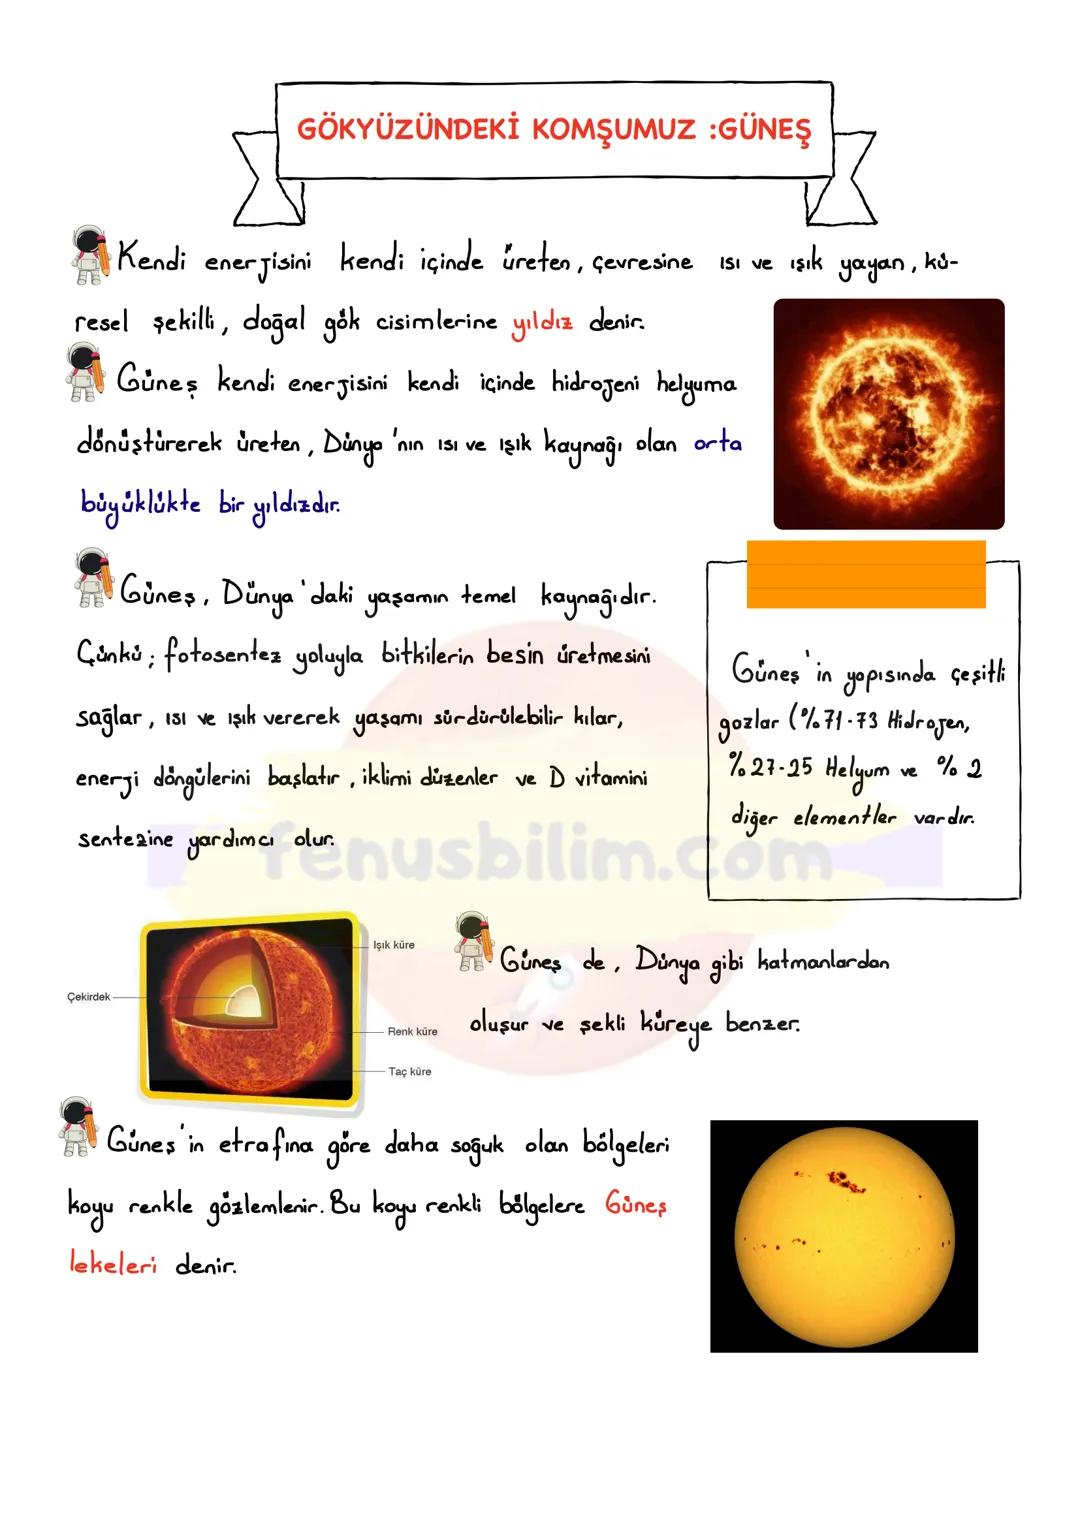 GÖKYÜZÜNDEKİ KOMŞUMUZ :GÜNEŞ
Kendi enerjisini kendi içinde üreten, çevresine ısı ve ışık yayan, kü-
resel şekilli, doğal gök cisimlerine yıldız denir.
Güneş kendi enerjisini kendi içinde hidrojeni helyuma
dönüştürerek üreten, Dünya'nın ısı ve ışık kaynağı olan orta
büyüklükte bir yıldızdır.
Güneş, Dünya'daki yaşamın temel kaynağıdır.
Çünkü; fotosentez yoluyla bitkilerin besin üretmesini
sağlar, ısı ve ışık vererek yaşamı sürdürülebilir kılar,
enerji döngülerini başlatır, iklimi düzenler ve D vitamini
sentezine yardımcı olur.
Güneş'in yapısında çeşitli
gazlar (%71-73 Hidrojen,
%27-25 Helyum ve %2
diğer elementler vardır.
fenusbilim.com
Işık küre
Çekirdek
Renk küre
Taç küre
Güneş de, Dünya gibi katmanlardan
oluşur ve şekli küreye benzer.
Güneş'in etrafına göre daha soğuk olan bölgeleri
koyu renkle gözlemlenir. Bu koyu renkli bölgelere Güneş
lekeleri denir.